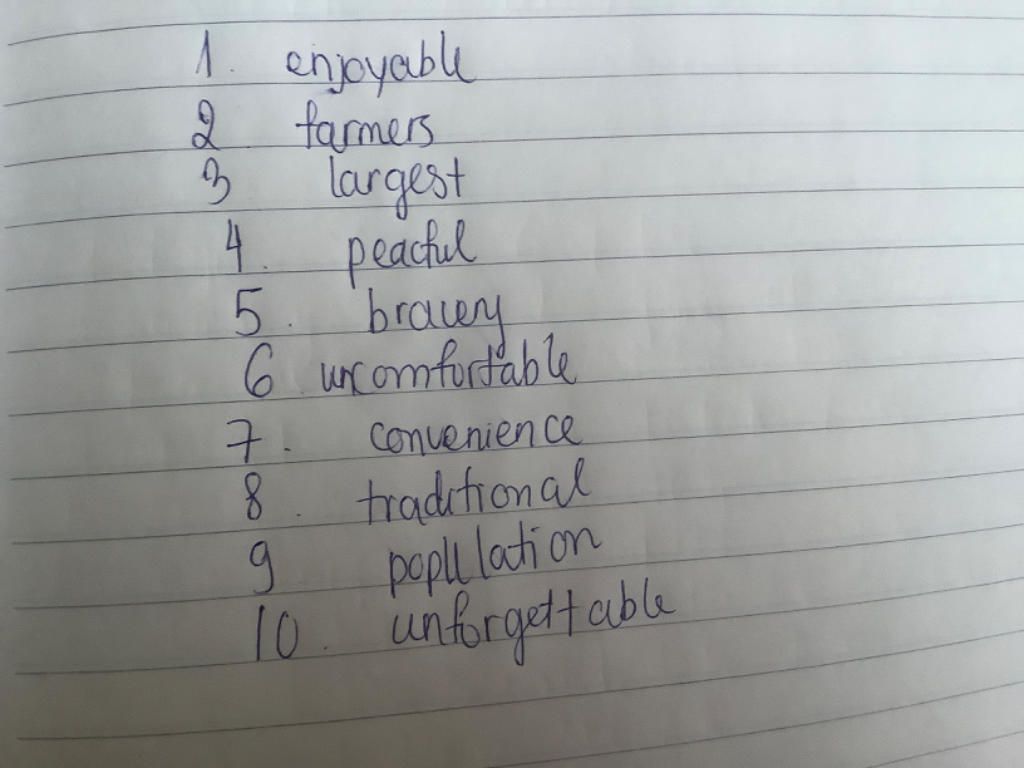 1. enjoyable
2. farmers
3 largest
4. peacful
5. bravery
6. uncomfortable
7. convenience
8. traditional
9 population
10. unforgettable